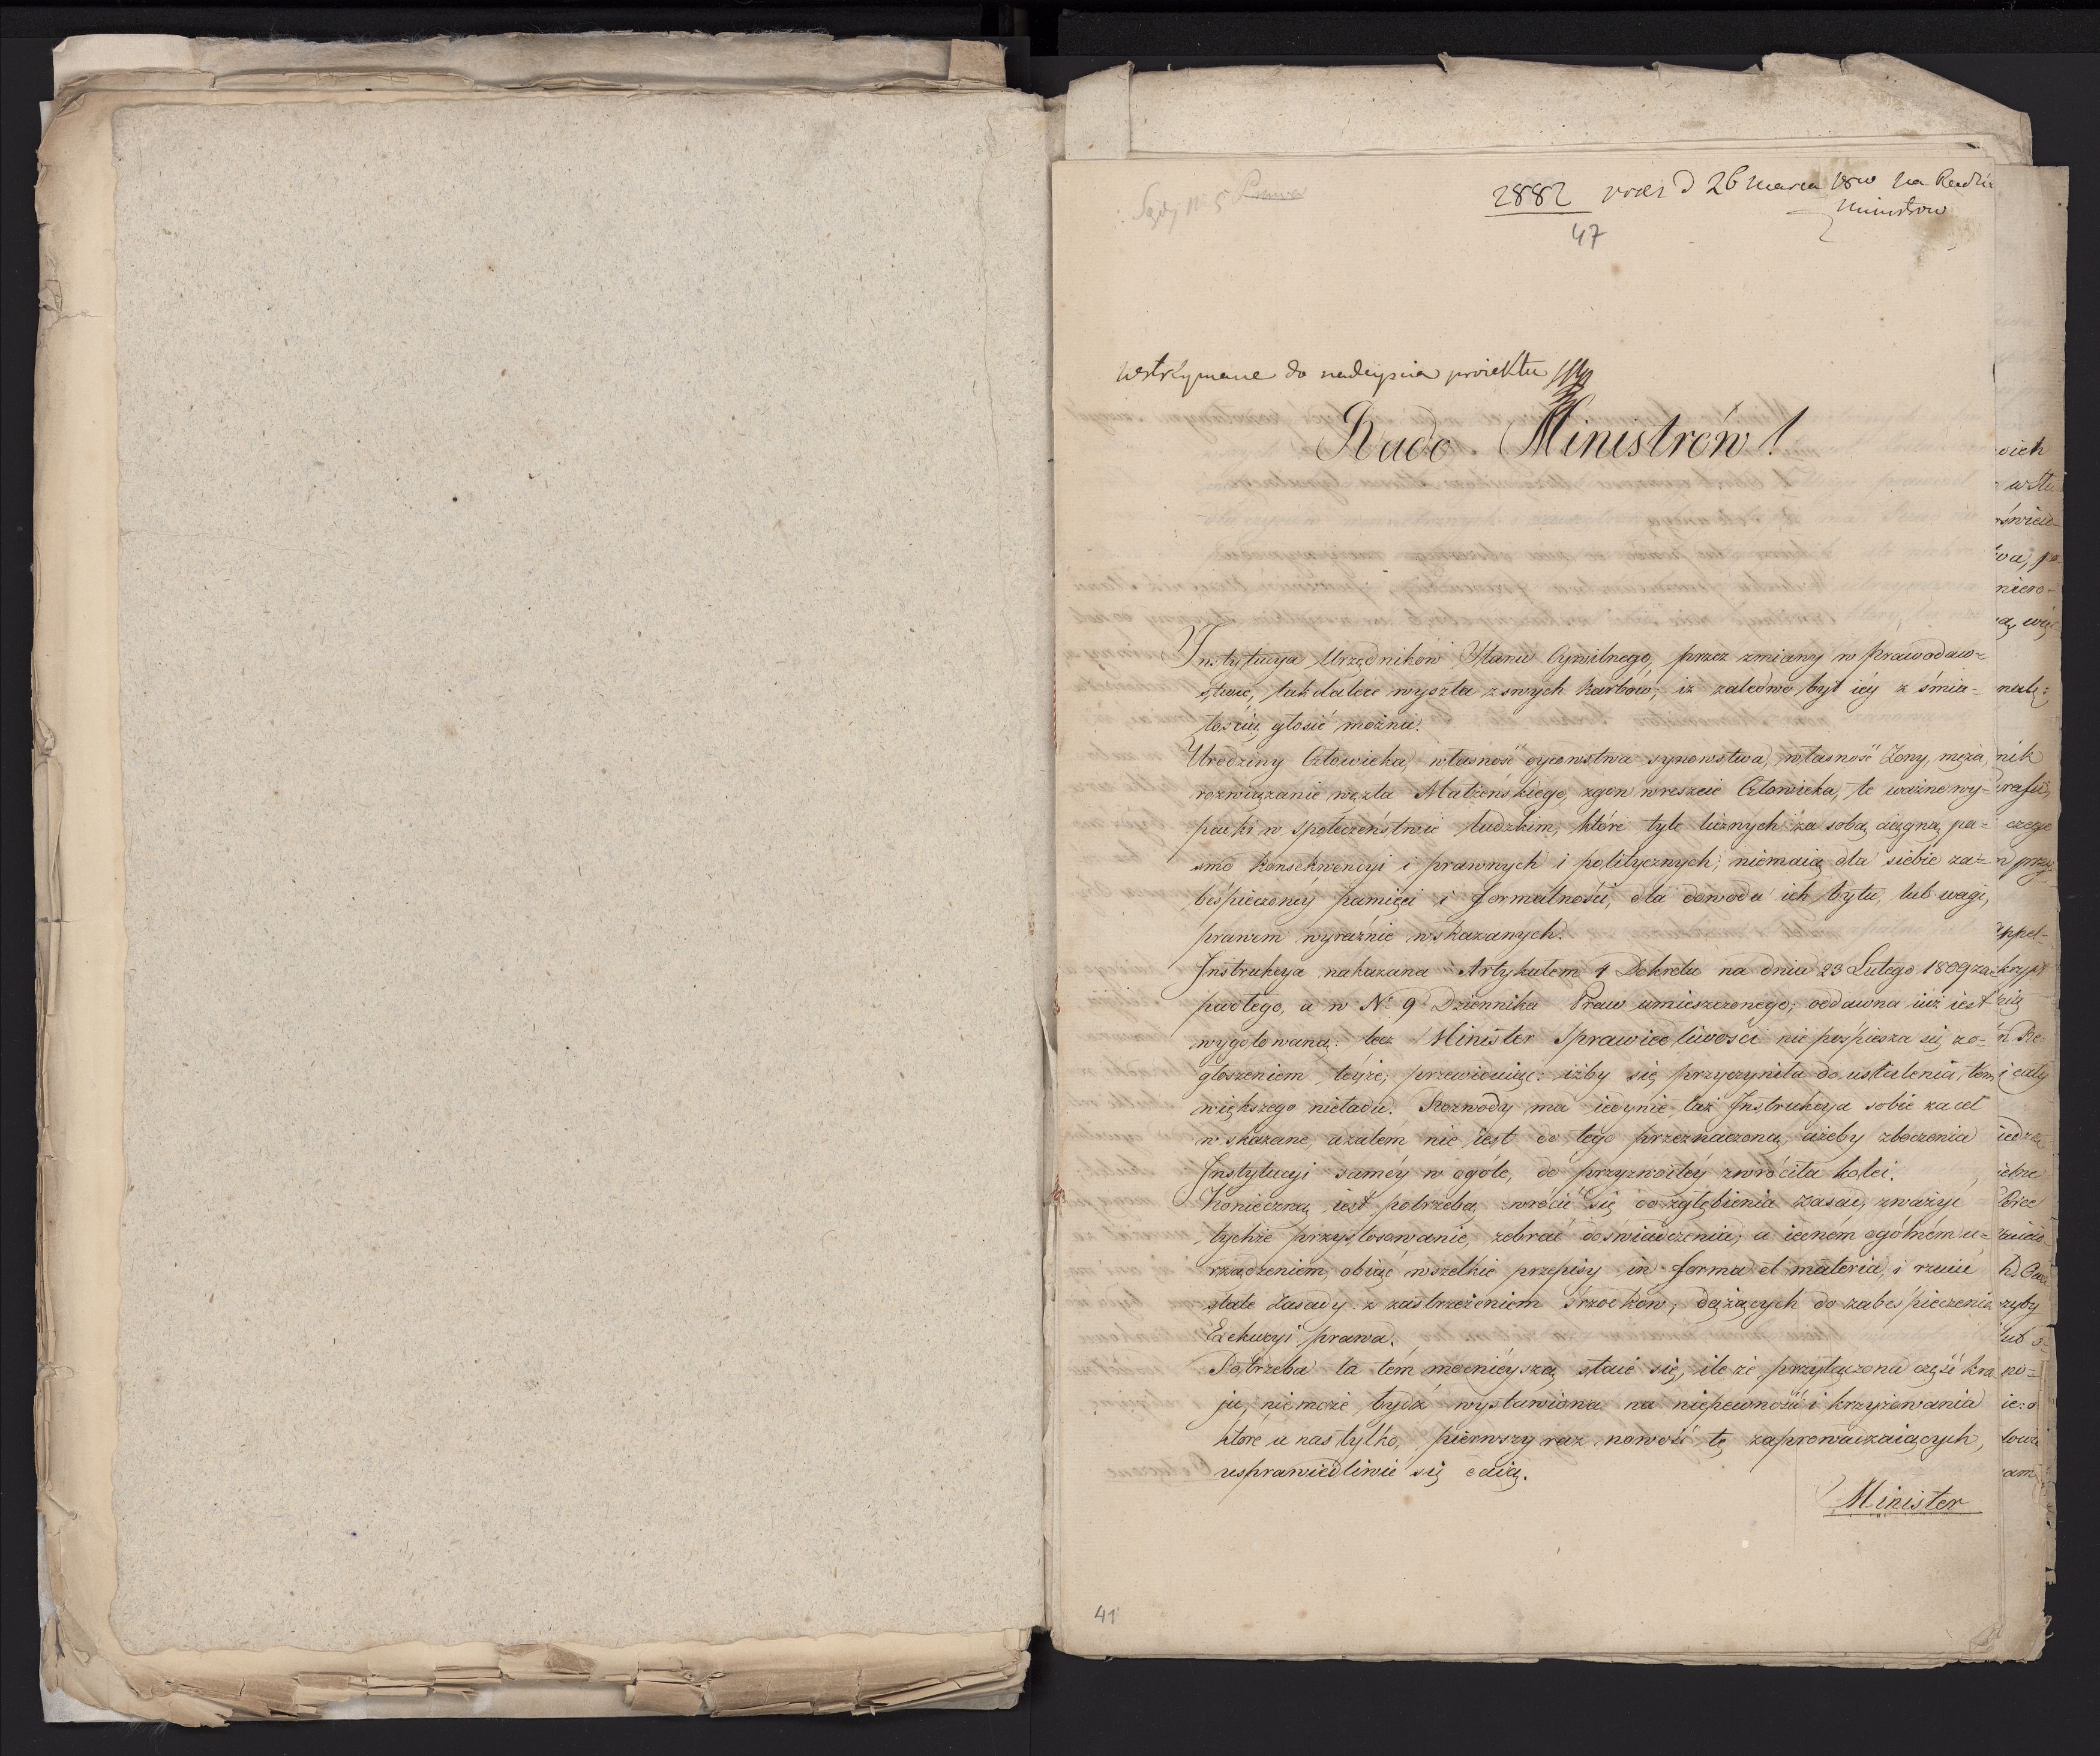 Sądy N 5
2882 d 26 marca na Radzie
Ministrow
47
wstrzymane do nadeyścia proiektu
Rado Ministrów !
Instytucya Urzędników Stanu Cywilnego, przez zmiany w prawodaw=
stwie, tak dalece wyszła z swych karbów, iż zaledwo byt iéy z śmia=
łością głosić można.
Urodziny Człowieka, własność oycowstwa synowstwa, własność Żony, męża,
rozwiązanie węzła Małżeńskiego, zgon wreszcie Człowieka, te ważne wy=
padki w społeczeństwie ludzkim, które tyle licznych za sobą ciągną pa=
smo konsekwencyi i prawnych i politycznych, niemaią dla siebie za=
bespieczonéy pamięci i formalności, dla dowodu ich bytu, lub wagi,
prawem wyraźnie wskazanych.
Instrukcya nakazana Artykułem 1 Dekretu na dnia 23 Lutego 1809 za=
padłego, a w N. 9 Dziennika Praw umieszczonego, oddawna iuż iest
wygotowaną: lecz Minister Sprawiedliwości nie pośpiesza się z o=
głoszeniem téyże, przewiduiąc: iżby się przyczyniła do ustalenia, tem
większego nieładu. Rozwody ma iedynie taż Instrukcya sobie za cel
wskazane, azatem nie iest do tego przeznaczoną, ażeby zboczenia
Instytucyi saméy w ogóle, do przyzwoitéy zwróciła kolei.
Konieczną iest potrzebą zwrócić się do zgłębienia zasad, zważyć
tychże przystosowanie, zebrać doświadczenia, a iedném ogólném u=
rządzeniem, obiąć wszelkie przepisy in forma et materia, i rzucić
stałe zasady z zastrzeżeniem śrzodków, dążących do zabespieczenia
Exekucyi prawa.
Potrzeba ta tém mocniéyszą staie się, ile że przyłączona część kra
ju, niemoże bydź wystawiona na niepewność i krzyżowania
które u nas tylko, pierwszy raz nowość tę zaprowadzaiących,
usprawiedliwić się daią.
Minister
41